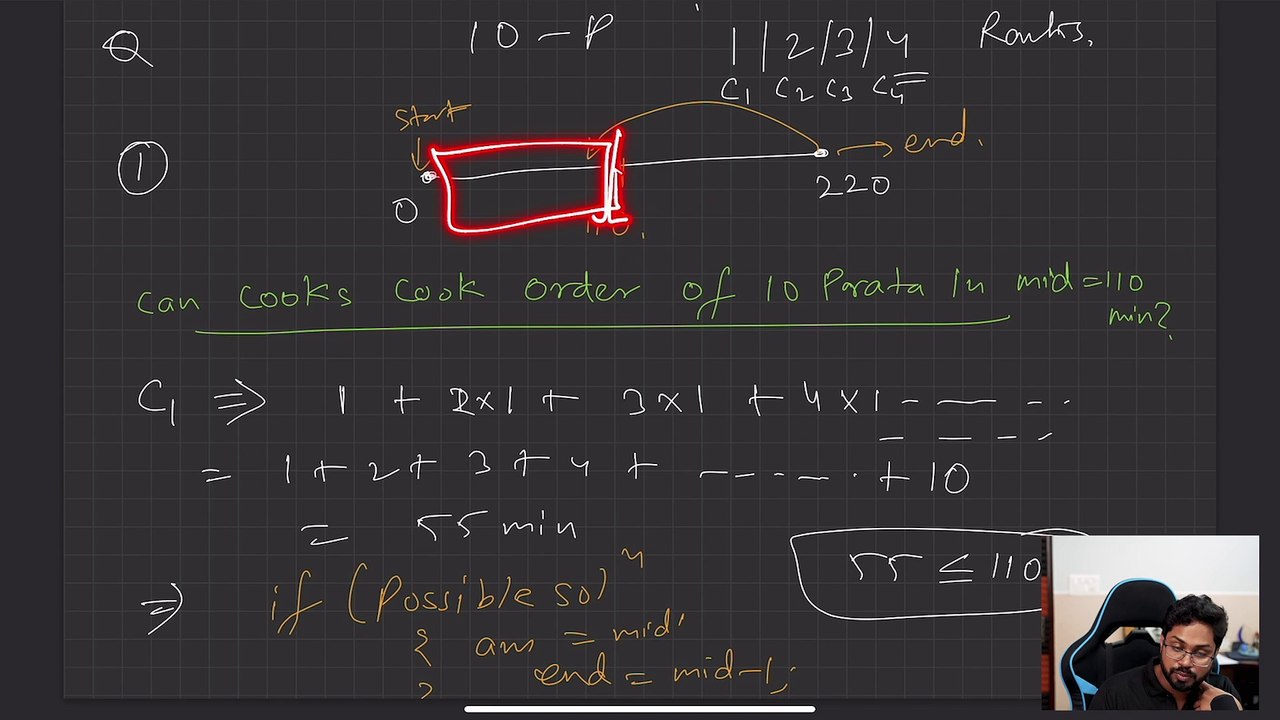 Q 10-P 1/2/3/4 Ranks.
C1 C2 C3 C4
start
end.
①
0 220
110.
can cooks cook order of 10 Parata in mid=110
min?
C1 ⇒ 1 + 2×1 + 3×1 + 4×1 - — - -
= 1 + 2 + 3 + 4 + - - - - - . + 10
= 55 min
55 ≤ 110
⇒ if (Possible sol)
{ ans = mid;
end = mid-1;
}